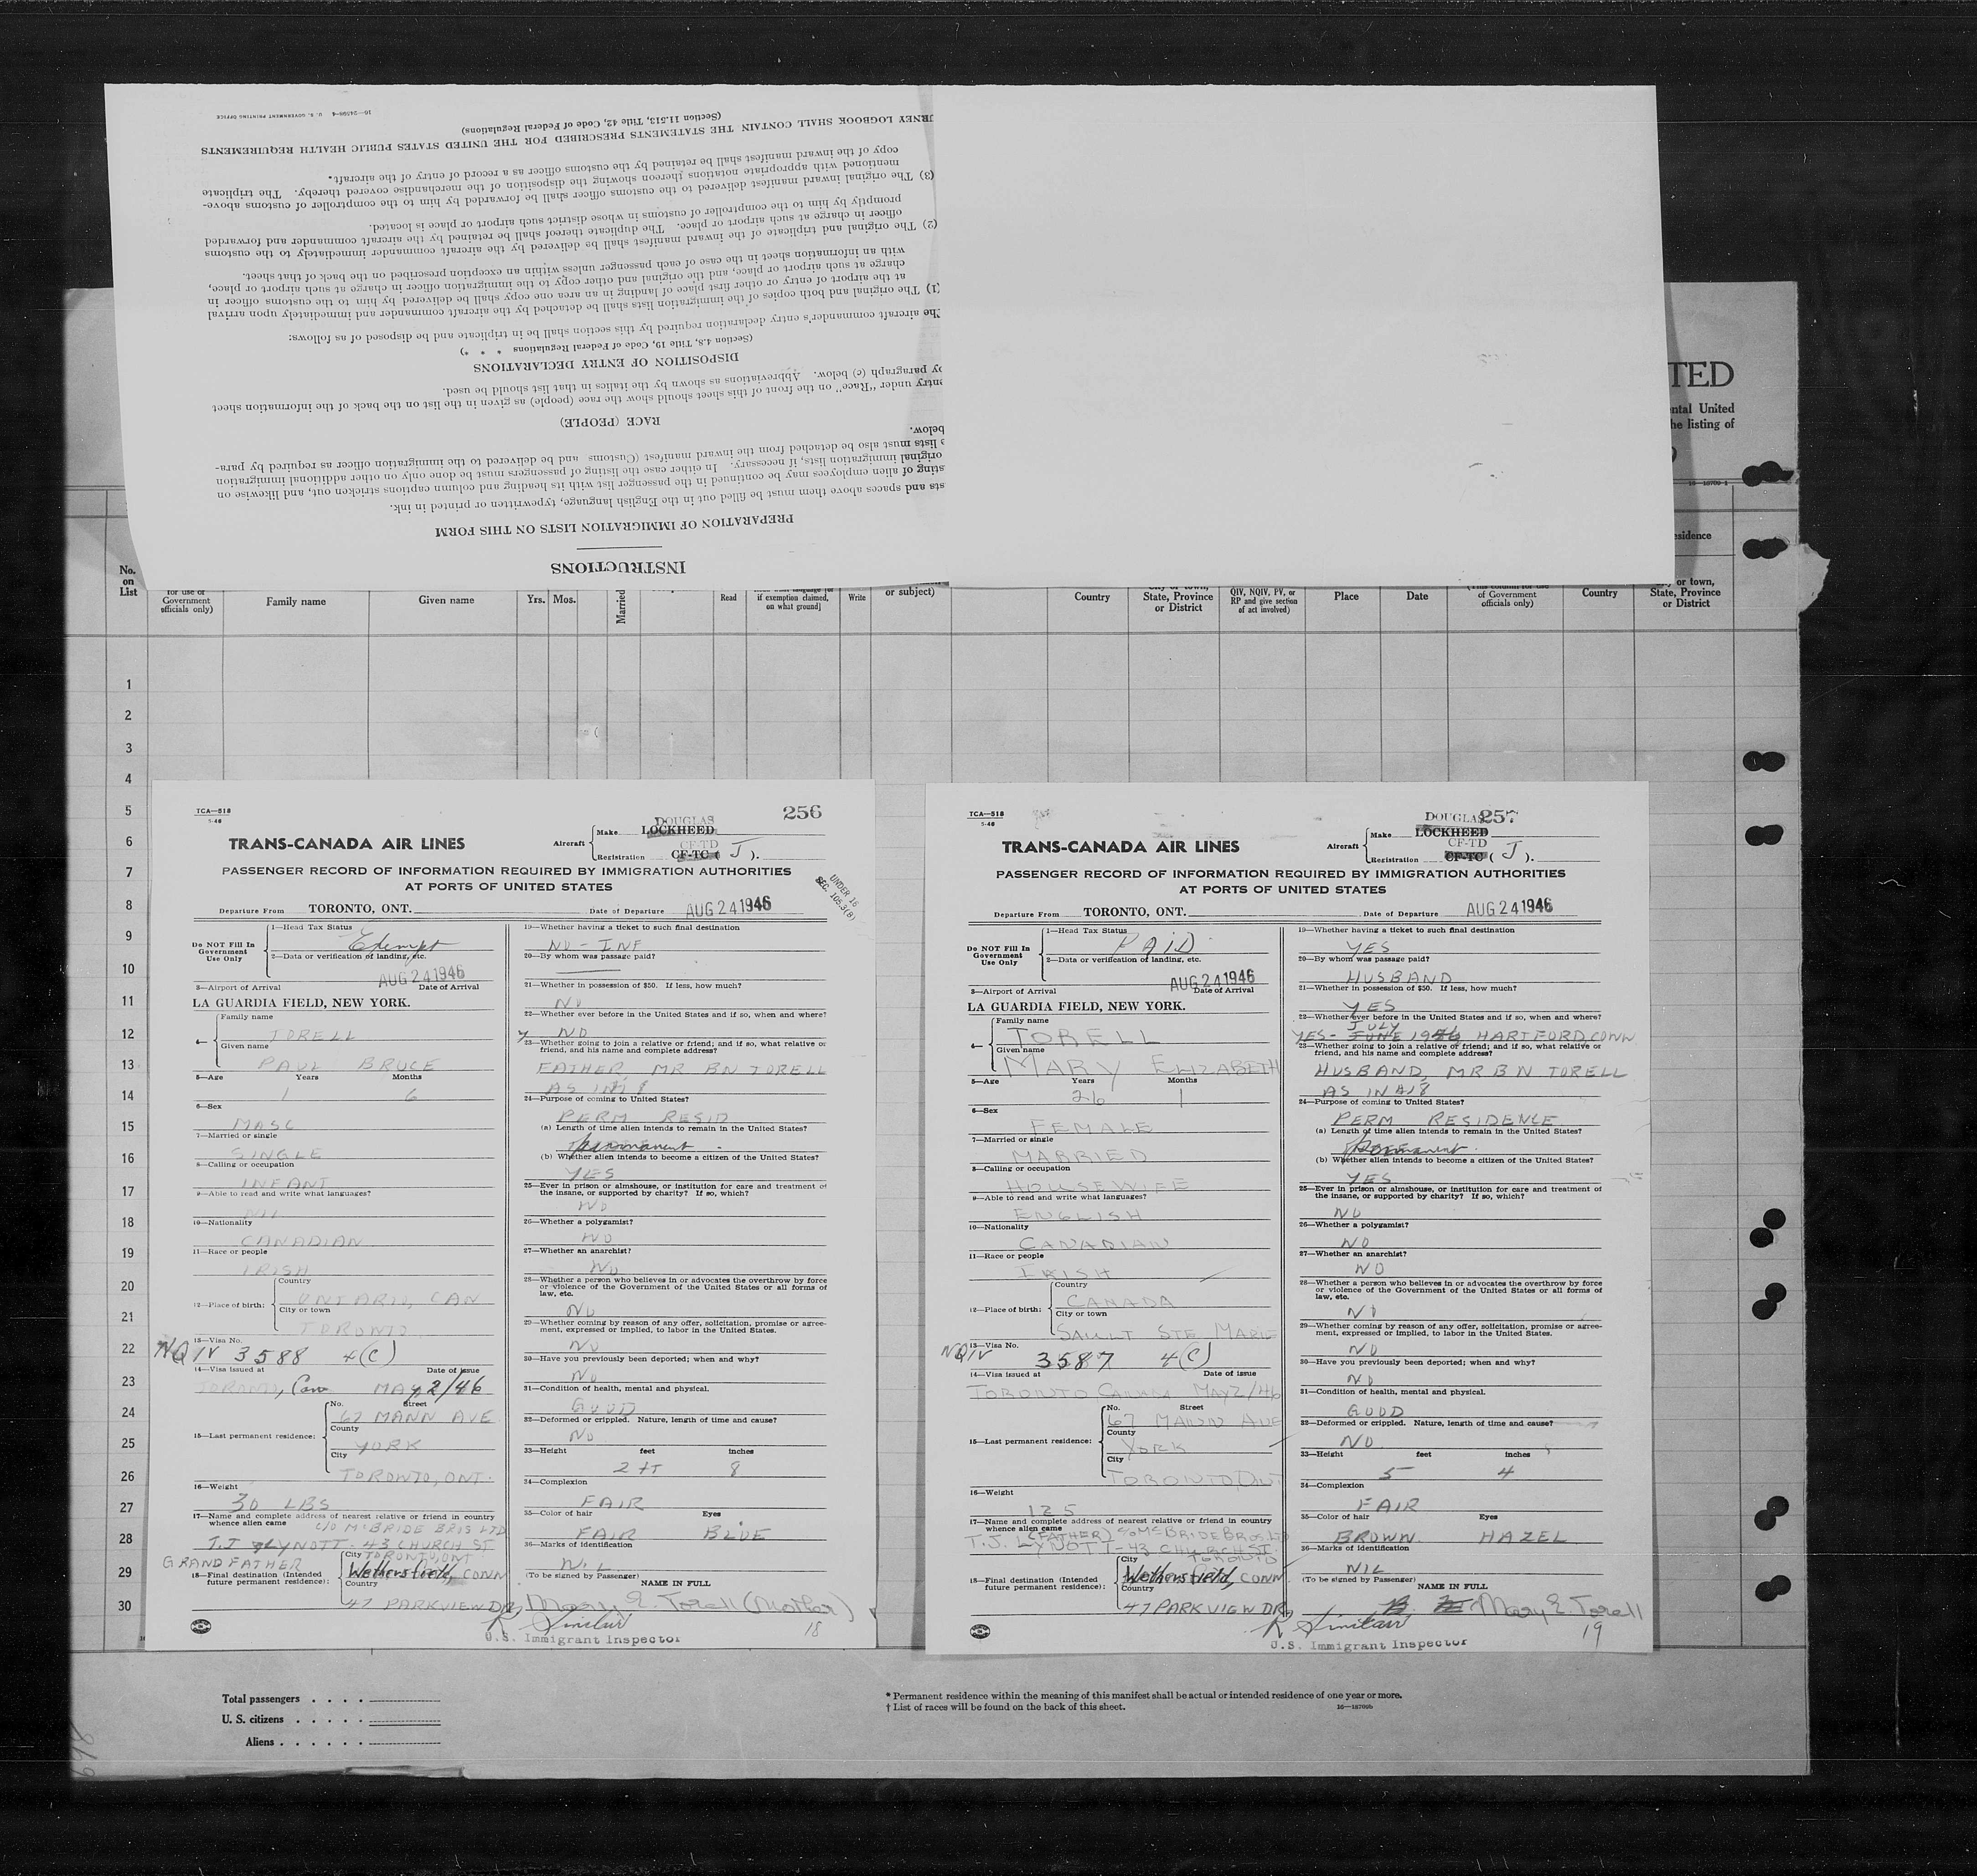 INSTRUCTIONS
PREPARATION OF IMMIGRATION LISTS ON THIS FORM
sts and spaces above them must be filled out in the English language, typewritten or printed in ink.
sting of alien employees may be continued in the passenger list with its heading and column captions stricken out, and likewise on
original immigration lists, if necessary. In either case the listing of passengers must be done only on other additional immigration
lists must also be detached from the inward manifest (Customs and be delivered to the immigration officer as required by para-
below.
RACE (PEOPLE)
entry under "Race" on the front of this sheet should show the race (people) as given in the list on the back of the information sheet
by paragraph (c) below. Abbreviations as shown by the italics in that list should be used.
DISPOSITION OF ENTRY DECLARATIONS
(Section 4.8, Title 19, Code of Federal Regulations * * *)
The aircraft commander's entry declaration required by this section shall be in triplicate and be disposed of as follows:
(1) The original and both copies of the immigration lists shall be detached by the aircraft commander and immediately upon arrival
at the airport of entry or other first place of landing in an area one copy shall be delivered by him to the customs officer in
charge at such airport or place, and the original and other copy to the immigration officer in charge at such airport or place,
with an information sheet in the case of each passenger unless within an exception prescribed on the back of that sheet.
(2) The original and triplicate of the inward manifest shall be delivered by the aircraft commander immediately to the customs
officer in charge at such airport or place. The duplicate thereof shall be retained by the aircraft commander and forwarded
promptly by him to the comptroller of customs in whose district such airport or place is located.
(3) The original inward manifest delivered to the customs officer shall be forwarded by him to the comptroller of customs above-
mentioned with appropriate notations thereon showing the disposition of the merchandise covered thereby. The triplicate
copy of the inward manifest shall be retained by the customs officer as a record of entry of the aircraft.
RNEY LOGBOOK SHALL CONTAIN THE STATEMENTS PRESCRIBED FOR THE UNITED STATES PUBLIC HEALTH REQUIREMENTS
(Section 11.513, Title 42, Code of Federal Regulations)
16—24306-4 U. S. GOVERNMENT PRINTING OFFICE
TED
ntal United
he listing of
16—18709-1
esidence
No. on List
for use of Government officials only)
Family name
Given name
Yrs. Mos.
Married
Read
if exemption claimed, on what ground]
Write
or subject)
Country
State, Province or District
QIV, NQIV, PV, or RP and give section of act involved)
Place
Date
of Government officials only)
Country
or town, State, Province or District
1
2
3
4
5
6
7
8
9
10
11
12
13
14
15
16
17
18
19
20
21
22
23
24
25
26
27
28
29
30
TCA—518
5-46
256
TRANS-CANADA AIR LINES
Aircraft
Make DOUGLAS LOCKHEED
Registration CF-TD CF-TC ( J ).
PASSENGER RECORD OF INFORMATION REQUIRED BY IMMIGRATION AUTHORITIES
AT PORTS OF UNITED STATES
UNDER 16
Departure From TORONTO, ONT. Date of Departure AUG 24 1946
Do NOT Fill In Government Use Only
1—Head Tax Status Exempt
2—Data or verification of landing, etc.
AUG 24 1946
3—Airport of Arrival Date of Arrival
LA GUARDIA FIELD, NEW YORK.
4—
Family name
TORELL
Given name
PAUL BRUCE
5—Age Years Months
1 6
6—Sex
MASC
7—Married or single
SINGLE
8—Calling or occupation
INFANT
9—Able to read and write what languages?
NIL
10—Nationality
CANADIAN
11—Race or people
IRISH
12—Place of birth:
Country
ONTARIO, CAN
City or town
TORONTO
13—Visa No.
NQIV 3588 4(C)
14—Visa issued at Date of issue
TORONTO, Can MAY 2/46
15—Last permanent residence:
No. Street
67 MANN AVE
County
YORK
City
TORONTO, ONT.
16—Weight
30 LBS
17—Name and complete address of nearest relative or friend in country
whence alien came
c/o McBRIDE BROS LTD
T.J. LYNOTT - 43 CHURCH ST
GRANDFATHER
City TORONTO, ONT
18—Final destination (Intended future permanent residence):
Wethersfield, CONN
Country
47 PARKVIEW DR,
19—Whether having a ticket to such final destination
NO - INF
20—By whom was passage paid?
21—Whether in possession of $50. If less, how much?
NO
22—Whether ever before in the United States and if so, when and where?
NO
23—Whether going to join a relative or friend; and if so, what relative or
friend, and his name and complete address?
FATHER, MR BN TORELL
AS IN 18
24—Purpose of coming to United States?
PERM RESID
(a) Length of time alien intends to remain in the United States?
Permanent
(b) Whether alien intends to become a citizen of the United States?
YES
25—Ever in prison or almshouse, or institution for care and treatment of
the insane, or supported by charity? If so, which?
NO
26—Whether a polygamist?
NO
27—Whether an anarchist?
NO
28—Whether a person who believes in or advocates the overthrow by force
or violence of the Government of the United States or all forms of
law, etc.
NO
29—Whether coming by reason of any offer, solicitation, promise or agree-
ment, expressed or implied, to labor in the United States.
NO
30—Have you previously been deported; when and why?
NO
31—Condition of health, mental and physical.
GOOD
32—Deformed or crippled. Nature, length of time and cause?
NO
33—Height feet inches
2 FT 8
34—Complexion
FAIR
35—Color of hair Eyes
FAIR BLUE
36—Marks of identification
NIL
(To be signed by Passenger)
NAME IN FULL
Mary E. Torell (Mother)
R Sinclair 18
U.S. Immigrant Inspector
TCA—518
5-46
257
TRANS-CANADA AIR LINES
Aircraft
Make DOUGLAS LOCKHEED
Registration CF-TD CF-TC ( J ).
PASSENGER RECORD OF INFORMATION REQUIRED BY IMMIGRATION AUTHORITIES
AT PORTS OF UNITED STATES
Departure From TORONTO, ONT. Date of Departure AUG 24 1946
Do NOT Fill In Government Use Only
1—Head Tax Status PAID
2—Data or verification of landing, etc.
AUG 24 1946
3—Airport of Arrival Date of Arrival
LA GUARDIA FIELD, NEW YORK.
4—
Family name
TORELL
Given name
MARY ELIZABETH
5—Age Years Months
26 1
6—Sex
FEMALE
7—Married or single
MARRIED
8—Calling or occupation
HOUSEWIFE
9—Able to read and write what languages?
ENGLISH
10—Nationality
CANADIAN
11—Race or people
IRISH
12—Place of birth:
Country
CANADA
City or town
SAULT STE MARIE
13—Visa No.
NQIV 3587 4(C)
14—Visa issued at Date of issue
TORONTO CANADA MAY 2/46
15—Last permanent residence:
No. Street
67 MANN AVE
County
YORK
City
TORONTO, ONT
16—Weight
125
17—Name and complete address of nearest relative or friend in country
whence alien came
(FATHER) c/o McBRIDE BROS. LTD
T.J. LYNOTT - 43 CHURCH ST.
City TORONTO
18—Final destination (Intended future permanent residence):
Wethersfield, CONN
Country
47 PARKVIEW DR,
19—Whether having a ticket to such final destination
YES
20—By whom was passage paid?
HUSBAND
21—Whether in possession of $50. If less, how much?
YES
22—Whether ever before in the United States and if so, when and where?
JULY
YES - JUNE HARTFORD, CONN
23—Whether going to join a relative or friend; and if so, what relative or
friend, and his name and complete address?
HUSBAND, MR B N TORELL
AS IN 18
24—Purpose of coming to United States?
PERM RESIDENCE
(a) Length of time alien intends to remain in the United States?
Permanent
(b) Whether alien intends to become a citizen of the United States?
YES
25—Ever in prison or almshouse, or institution for care and treatment of
the insane, or supported by charity? If so, which?
NO
26—Whether a polygamist?
NO
27—Whether an anarchist?
NO
28—Whether a person who believes in or advocates the overthrow by force
or violence of the Government of the United States or all forms of
law, etc.
NO
29—Whether coming by reason of any offer, solicitation, promise or agree-
ment, expressed or implied, to labor in the United States.
NO
30—Have you previously been deported; when and why?
NO
31—Condition of health, mental and physical.
GOOD
32—Deformed or crippled. Nature, length of time and cause?
NO
33—Height feet inches
5 4
34—Complexion
FAIR
35—Color of hair Eyes
BROWN HAZEL
36—Marks of identification
NIL
(To be signed by Passenger)
NAME IN FULL
Mary E. Torell
R Sinclair 19
U.S. Immigrant Inspector
Total passengers . . . .
U. S. citizens . . . . .
Aliens . . . . . .
* Permanent residence within the meaning of this manifest shall be actual or intended residence of one year or more.
† List of races will be found on the back of this sheet.
16—18709b